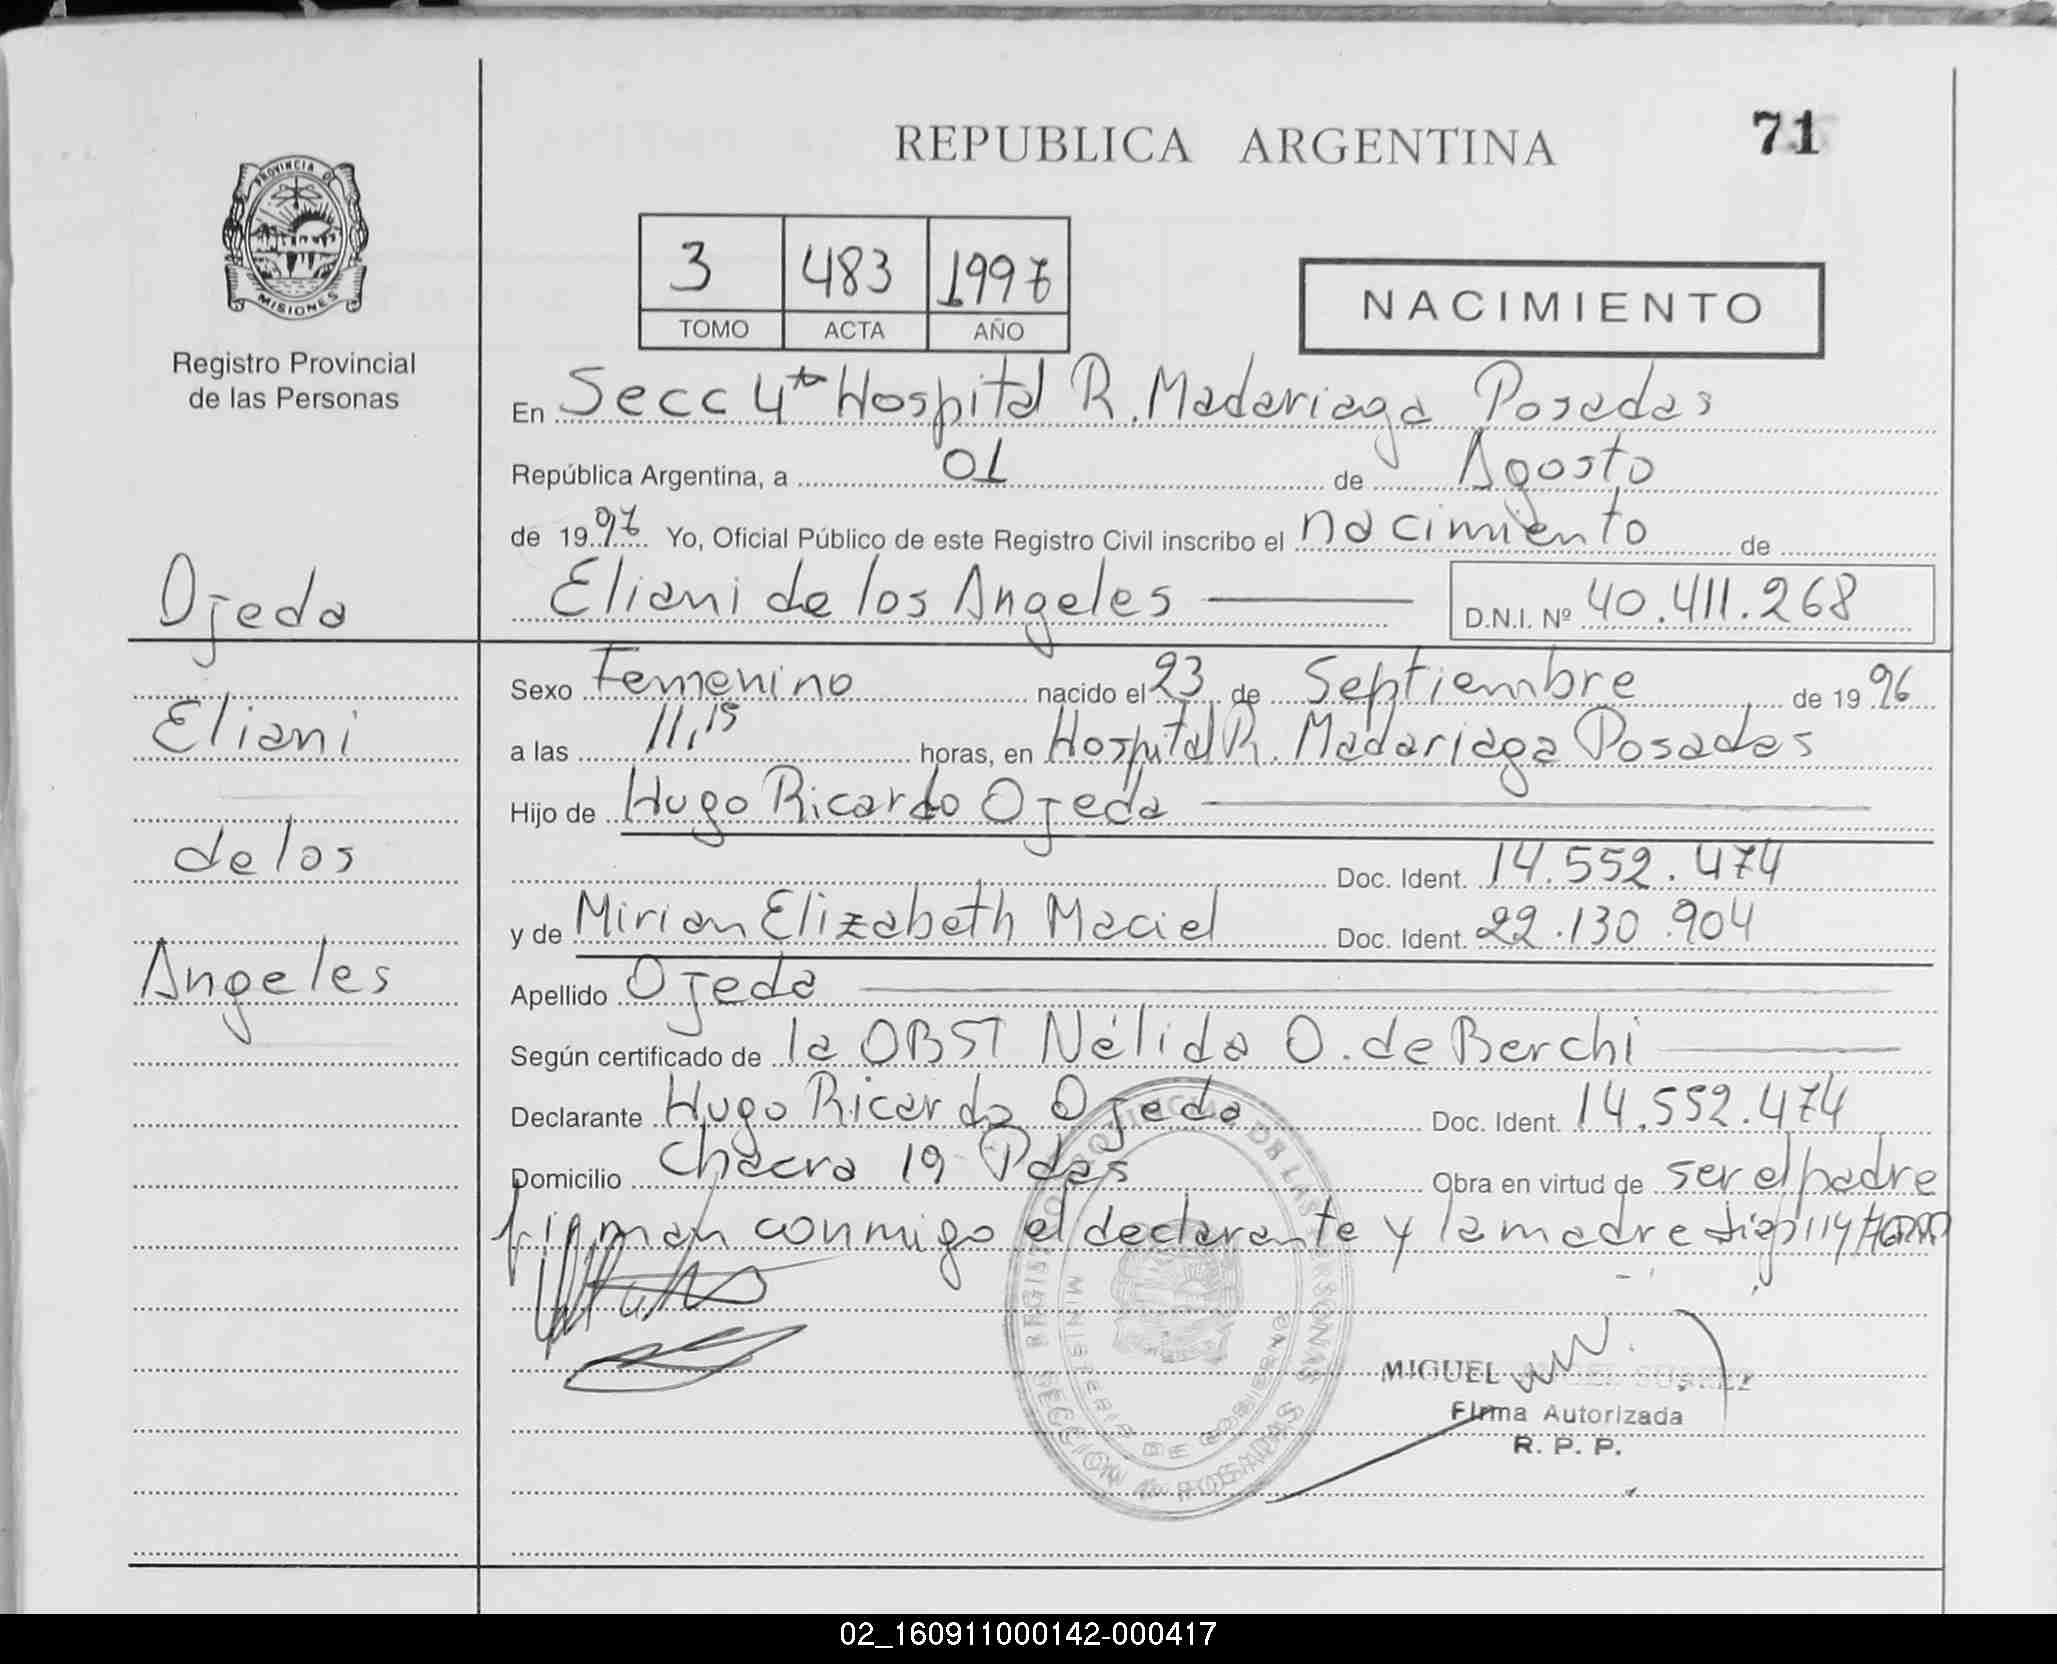 REPUBLICA ARGENTINA
71
PROVINCIA DE
MISIONES
Registro Provincial
de las Personas
3 483 1997
TOMO ACTA AÑO
NACIMIENTO
En Secc 4ta Hospital R. Madariaga Posadas
República Argentina, a 01 de Agosto
de 1997 Yo, Oficial Público de este Registro Civil inscribo el nacimiento de
Eliani de los Angeles
D.N.I. Nº 40.411.268
Ojeda
Eliani
de los
Angeles
Sexo Femenino nacido el 23 de Septiembre de 1996
a las 11,15 horas, en Hospital R. Madariaga Posadas
Hijo de Hugo Ricardo Ojeda
Doc. Ident. 14.552.474
y de Mirian Elizabeth Maciel Doc. Ident. 22.130.904
Apellido Ojeda
Según certificado de la OBST Nélida O. de Berchi
Declarante Hugo Ricardo Ojeda Doc. Ident. 14.552.474
Domicilio Chacra 19 Pdas Obra en virtud de ser el padre
firman conmigo el declarante y la madre
REGISTRO PROVINCIAL DE LAS PERSONAS
MINISTERIO DE GOBIERNO
SECCION 4ta POSADAS
MIGUEL
Firma Autorizada
R. P. P.
02_160911000142-000417